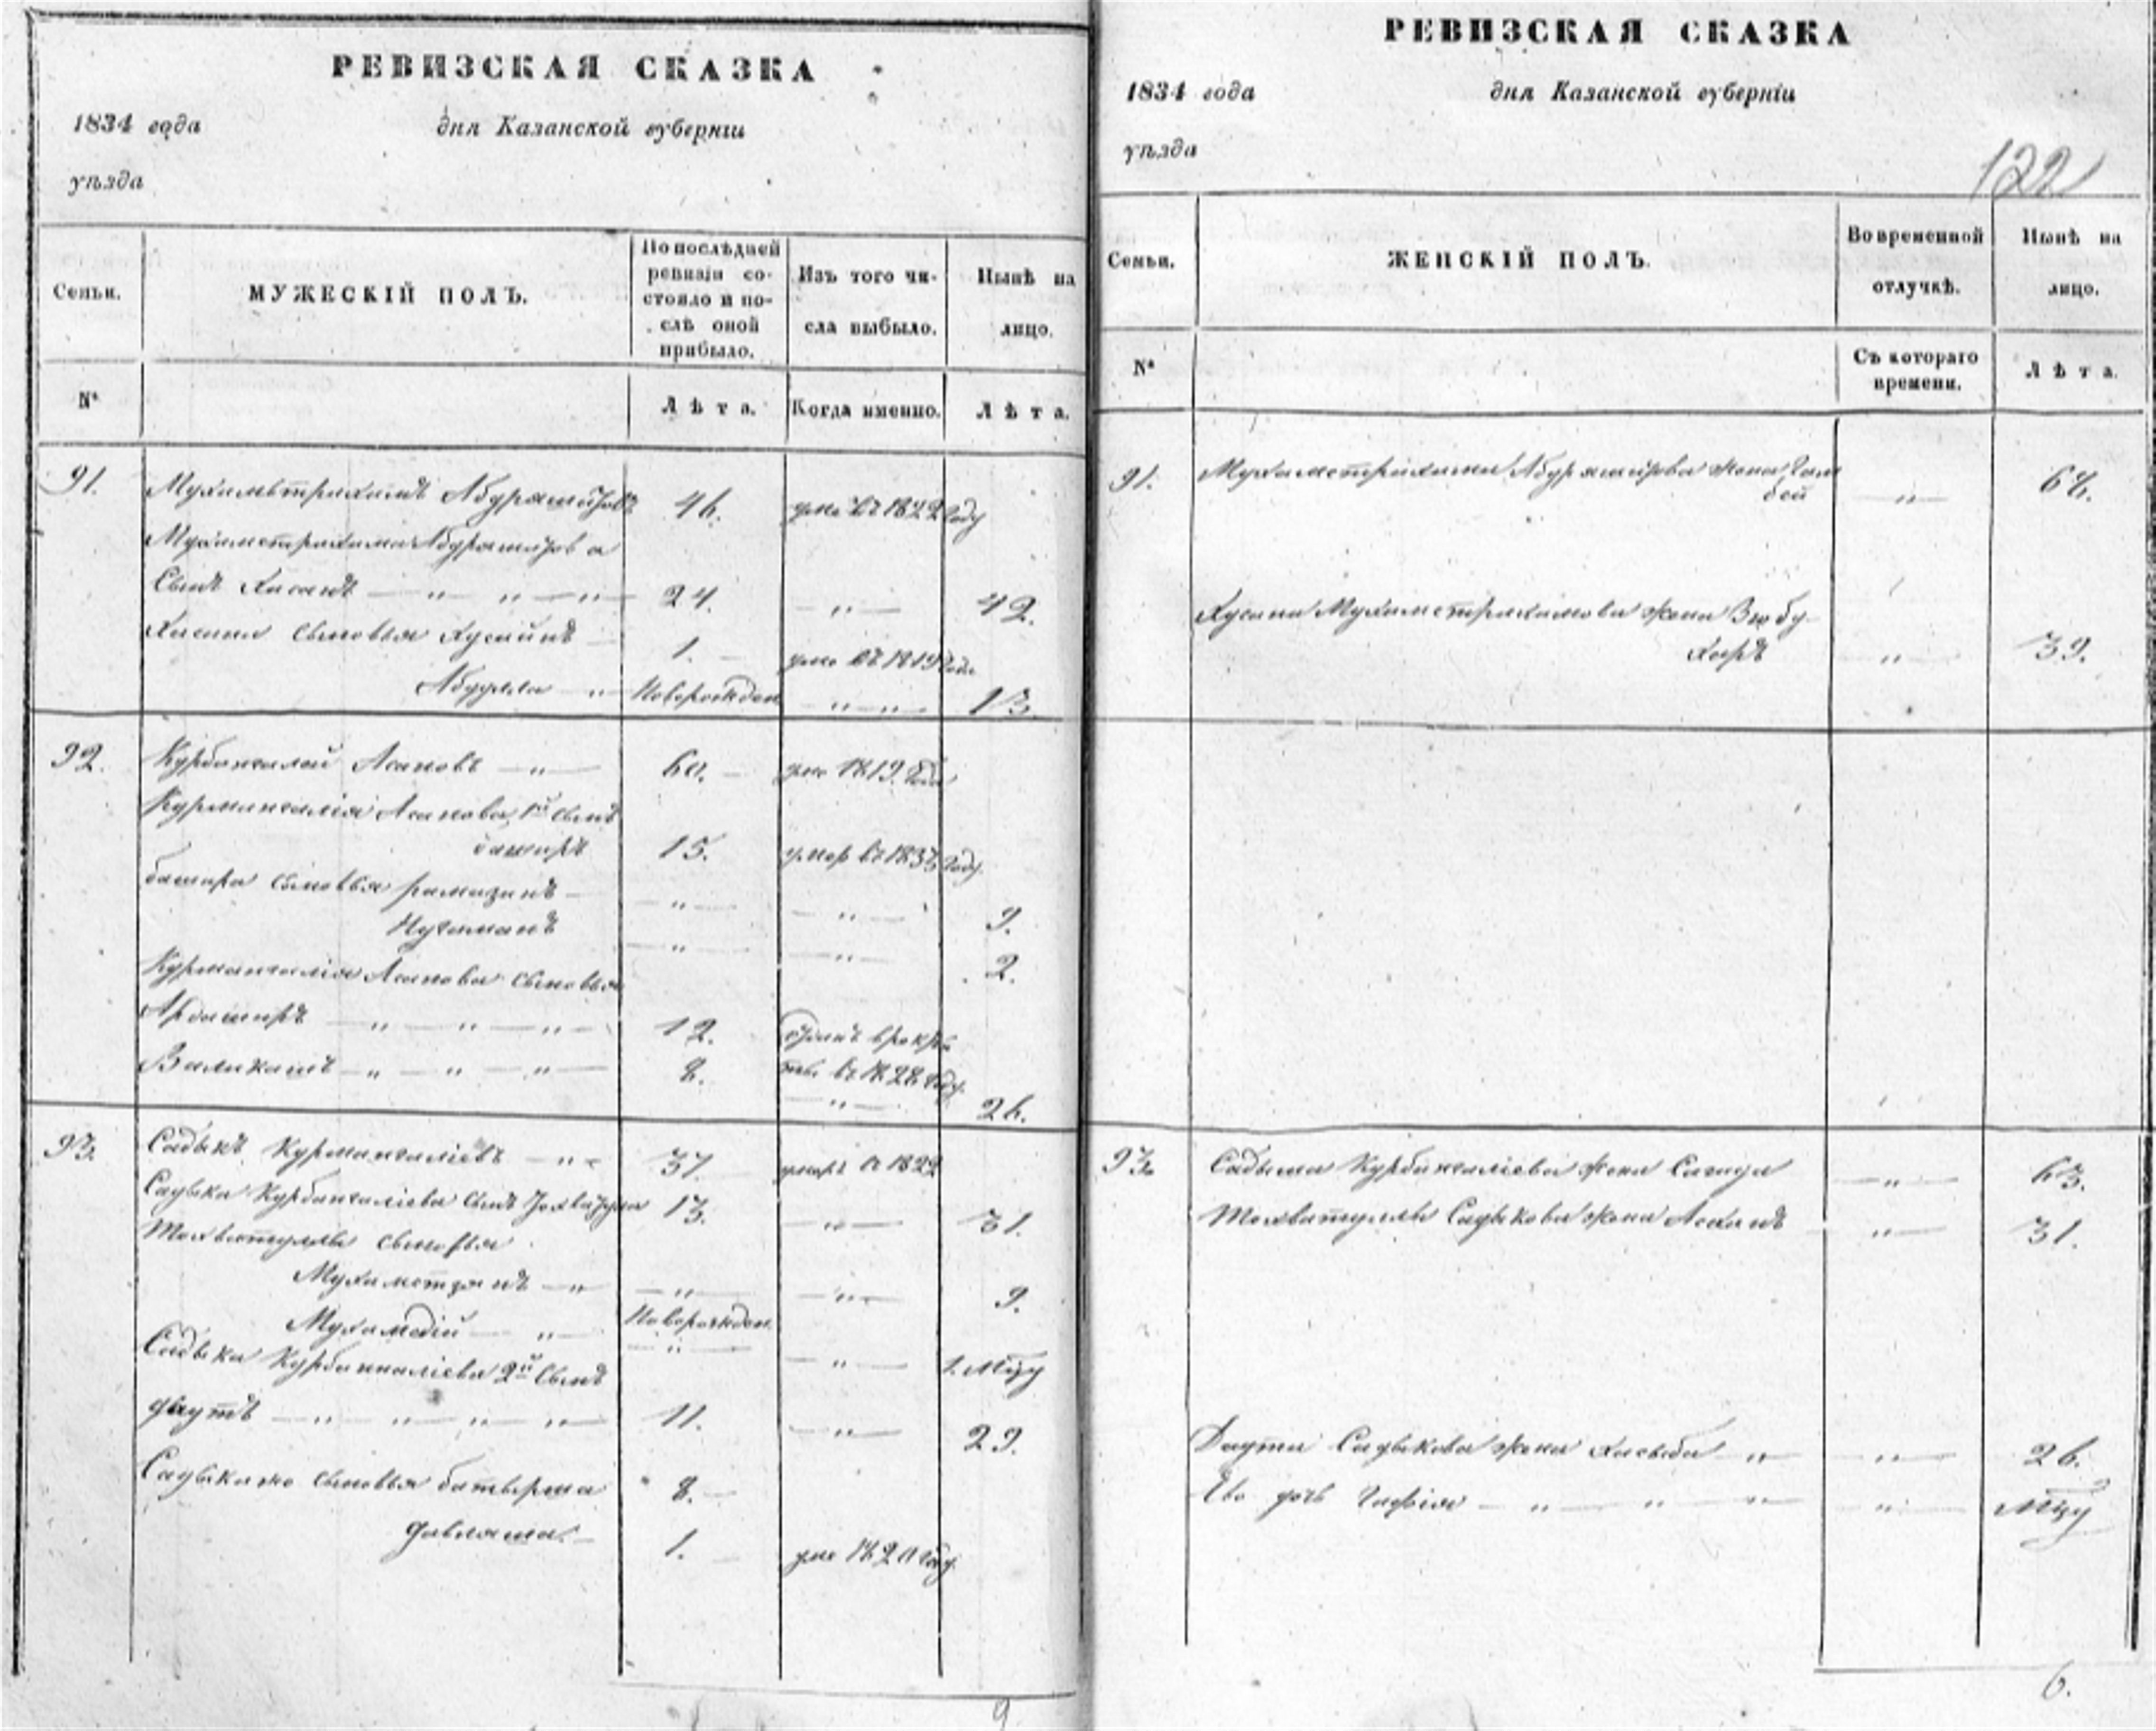 РЕВИЗСКАЯ СКАЗКА
1834 года дня Казанской губернiи
уѣзда
Семьи.
МУЖЕСКIЙ ПОЛЪ.
По послѣдней ревизiи состояло и послѣ оной прибыло.
Изъ того числа выбыло.
Нынѣ на лицо.
№
Лѣта.
Когда именно.
Лѣта.
91. Мухаметрахимъ Абдрашитовъ 46. уме въ 1822 году
Мухаметрахима Абдрашитова
Сынъ Хасанъ — „ „ — „ — 24. — „ — 42.
Хасана сыновья Хусаинъ — 1. — уме въ 1819 году
Абдулла — „ — Новорожден — „ — „ — 13.
92. Курбангалей Асановъ — „ — 60. — уме 1819. года
Курмангалiя Асанова 1й сынъ
башаръ 15. умер въ 1833 году
башара сыновья рамазанъ — — „ — — „ — 9.
Нугманъ — „ — — „ — 2.
Курмангалiя Асанова сыновья
Ардаширъ — „ — „ — „ — 12. отданъ в рекру
Валикашъ — „ — „ — „ — 8. ты въ 1828 году
— „ — 26.
93. Садыкъ Курмангалiевъ — „ — 37. умеръ в 1822
Садыка Курбангалiева сынъ 13. — „ — 31.
Тохватуллы сыновья
Мухаметзянъ — „ — „ — — „ — 9.
Мухамедiй — „ — Новорожден.
— „ — — „ — 1. мцу
Садыка Курбангалiева 2й сынъ
даутъ — „ — „ — „ — „ — 11. — „ — 29.
Садыка же сыновья батырша 8. —
давляша. — 1. — уме 1820 году
9
РЕВИЗСКАЯ СКАЗКА
1834 года дня Казанской губернiи
уѣзда
122
Семьи.
ЖЕНСКIЙ ПОЛЪ.
Во временной отлучкѣ.
Нынѣ на лицо.
№
Съ котораго времени.
Лѣта.
91. Мухаметрахима Абдрашитова жена
бей — „ — 68.
Хусана Мухаметрахимова жена Зюбу
харъ — „ — 39.
93. Садыка Курбангалiева жена Сагида — „ — 63.
Тохватуллы Садыкова жена — „ — 31.
Даута Садыкова жена Хасыба — „ — „ — 26.
Ево дочь Гафiя — „ — „ — „ — „ — мцу
6.